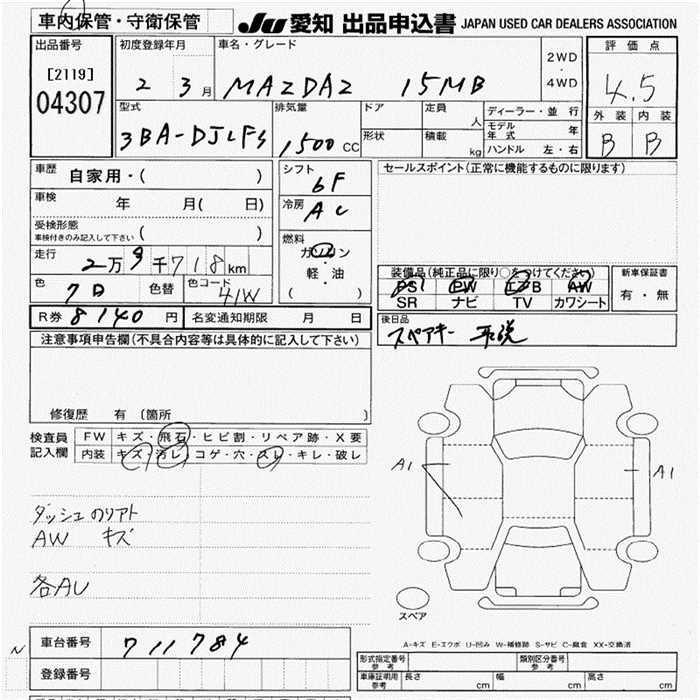 車内保管・守衛保管 JU 愛知 出品申込書 JAPAN USED CAR DEALERS ASSOCIATION
出品番号 初度登録年月 車名・グレード 評価点
[2119] 2 3月 MAZDA2 15MB 2WD・4WD 4.5
04307
型式 排気量 ドア 定員 人 ディーラー・並行 外装 内装
モデル年式 年
3BA-DJLFS 1500 CC 形状 積載 kg ハンドル 左・右 B B
車歴 自家用・( ) シフト 6F セールスポイント(正常に機能するものに限ります)
車検 年 月( 日) 冷房 AC
受検形態
車検付きのみ記入して下さい ( )
燃料 ガソリン・軽・油 ( )
走行 2万9千718km
装備品(純正品に限り○をつけてください) 新車保証書
色 色替 色コード 41W PS PW AW 有・無
SR ナビ TV カワシート
R券 8140円 名変通知期限 月 日 後日品
スペアキー 取説
注意事項申告欄(不具合内容等は具体的に記入して下さい)
修復歴 有 [箇所 ]
検査員 FW キズ・飛石・ヒビ割・リペア跡・X要
記入欄 内装 キズ・汚レ・コゲ・穴・スレ・キレ・破レ
A1 A1
ダッシュ のリアト
AW キズ
各AU
スペア
A-キズ E-エクボ U-凹み W-補修跡 S-サビ C-腐食 XX-交換済
N 車台番号 711784
形式指定番号 参考 類別区分番号 参考
登録番号 車庫証明用 参考 長さ cm 幅 cm 高さ cm